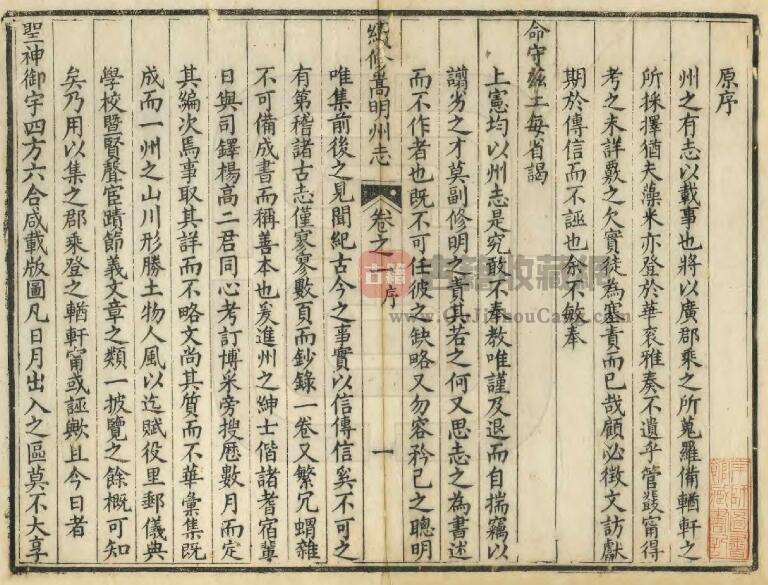 原序
州之有志以載事也將以廣郡乘之所蒐羅備輶軒之
所採擇猶夫藻米亦登於華衮雅奏不遺乎管籤甯得
考之未詳覈之欠實徒為塞責而已哉顧必徵文訪獻
期於傳信而不誣也余不敏奉
命守茲土每省謁
上憲均以州志是究敢不奉教唯謹及退而自揣竊以
譾劣之才莫副修明之責其若之何又思志之為書述
而不作者也既不可任彼之缺略又勿容矜己之聰明
續修嵩明州志
卷之一序
一
唯集前後之見聞紀古今之事實以信傳信奚不可之
有第稽諸古志僅寥寥數頁而鈔錄一卷又繁冗蝟雜
不可備成書而稱善本也爰進州之紳士偕諸耆宿輩
日與司鐸楊高二君同心考訂博采旁搜歷數月而定
其編次焉事取其詳而不略文尚其質而不華彙集既
成而一州之山川形勝土物人風以迄賦役里郵儀典
學校暨賢聲宦蹟節義文章之類一披覽之餘概可知
矣乃用以集之郡乘登之輶軒甯或誣歟且今日者
聖神御宇四方六合咸載版圖凡日月出入之區莫不大享
古籍
古籍收藏網
www.GuJiShouCang.com